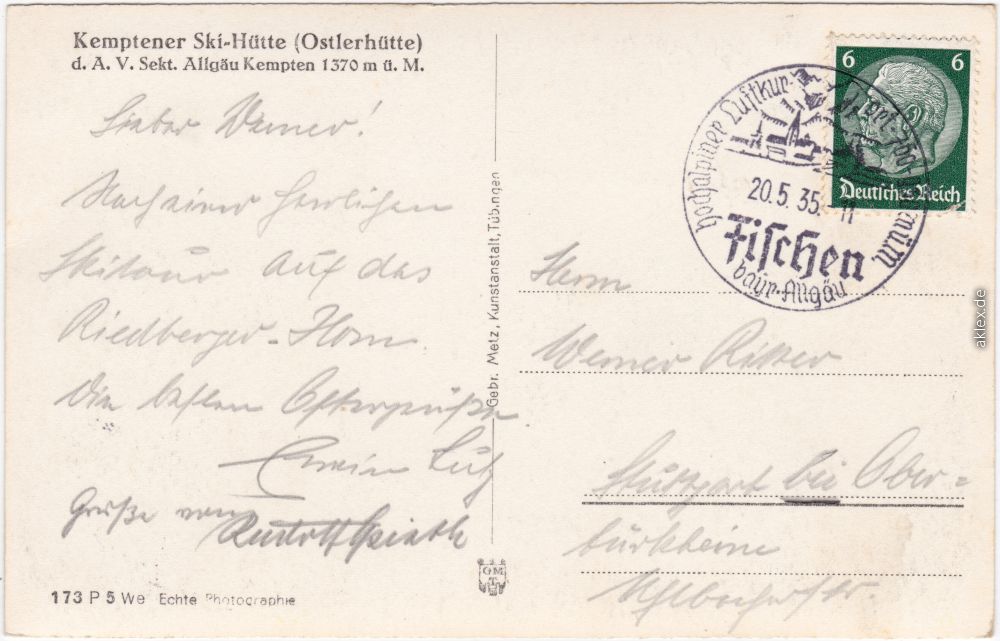 Kemptener Ski-Hütte (Ostlerhütte)
d. A. V. Sekt. Allgäu Kempten 1370 m ü. M.
Lieber Werner!
Nach einer herrlichen
Skitour auf das
Riedberger-Horn
die besten Ostergrüße
Erwin Lutz
Grüße von
Rudolf
173 P 5 We Echte Photographie
Gebr. Metz, Kunstanstalt, Tübingen
GM
T
6 6
Deutsches Reich
hochalpiner Luftkur-
20.5.35.-11
Fischen
bayr. Allgäu
Herrn
Werner Ritter
Stuttgart bei Ober-
türkheim
aklex.de